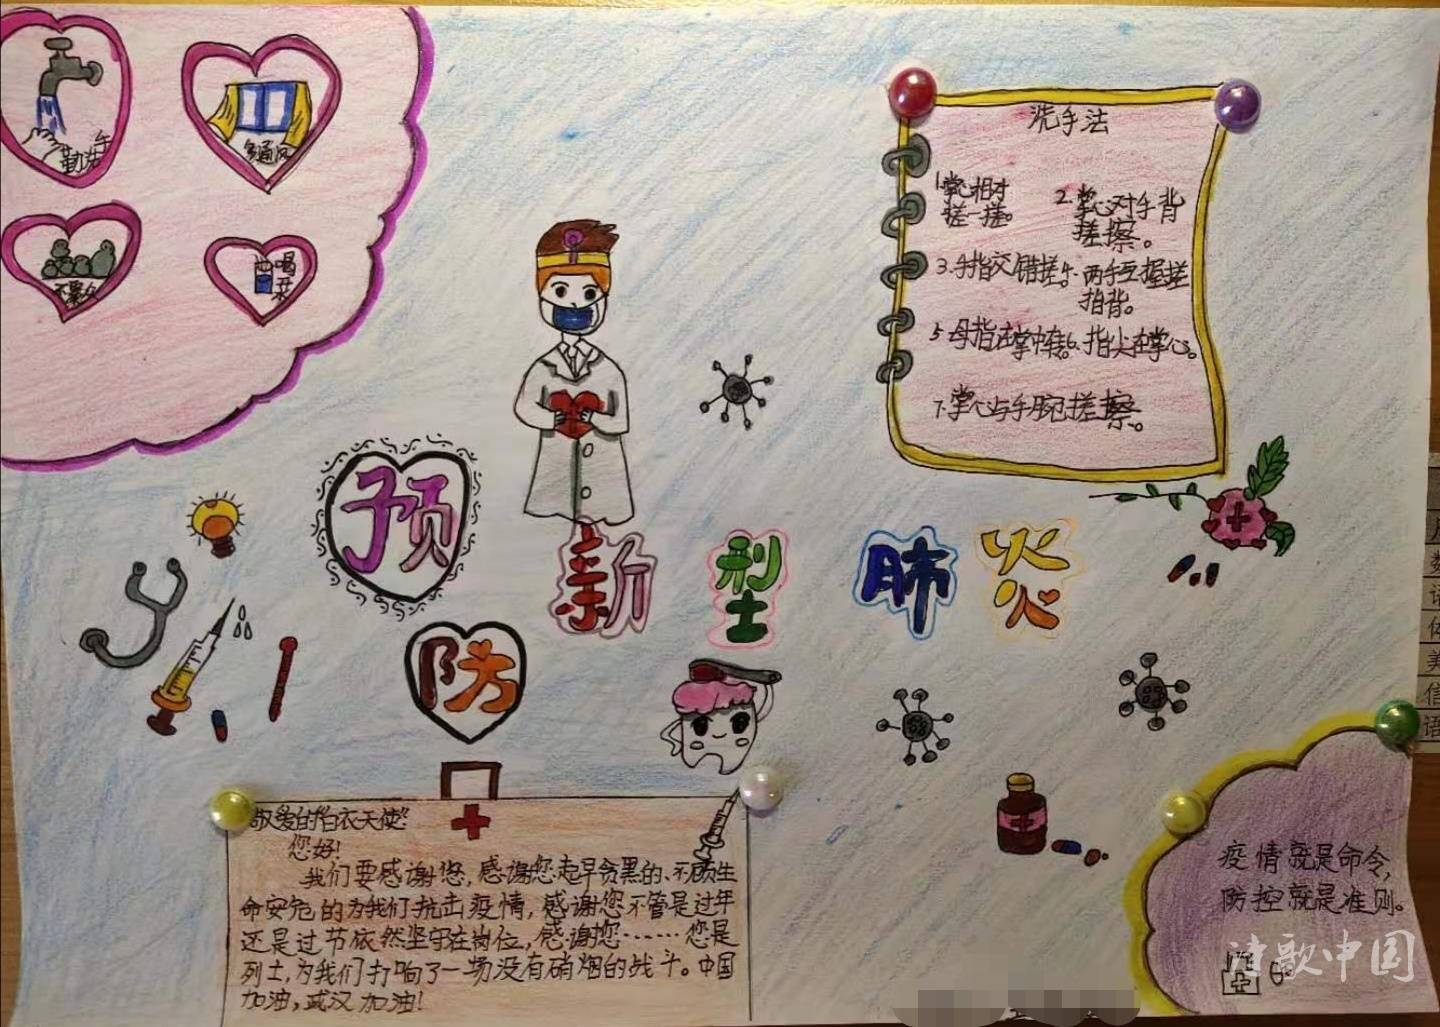 勤洗手
多通风
不聚众
喝开水
洗手法
1.掌心相对
搓一搓。
2.掌心对手背
搓擦。
3.手指交错搓。
4.两手互握搓
指背。
5.母指在掌中转。
6.指尖在掌心。
7.掌心与手腕搓擦。
预
防
新型肺炎
敬爱的“白衣天使”
您好!
我们要感谢您,感谢您起早贪黑的、不顾生
命安危的为我们抗击疫情,感谢您不管是过年
还是过节依然坚守在岗位,感谢您……您是
烈士,为我们打响了一场没有硝烟的战斗。中国
加油,武汉加油!
疫情就是命令,
防控就是准则。
诗歌中国